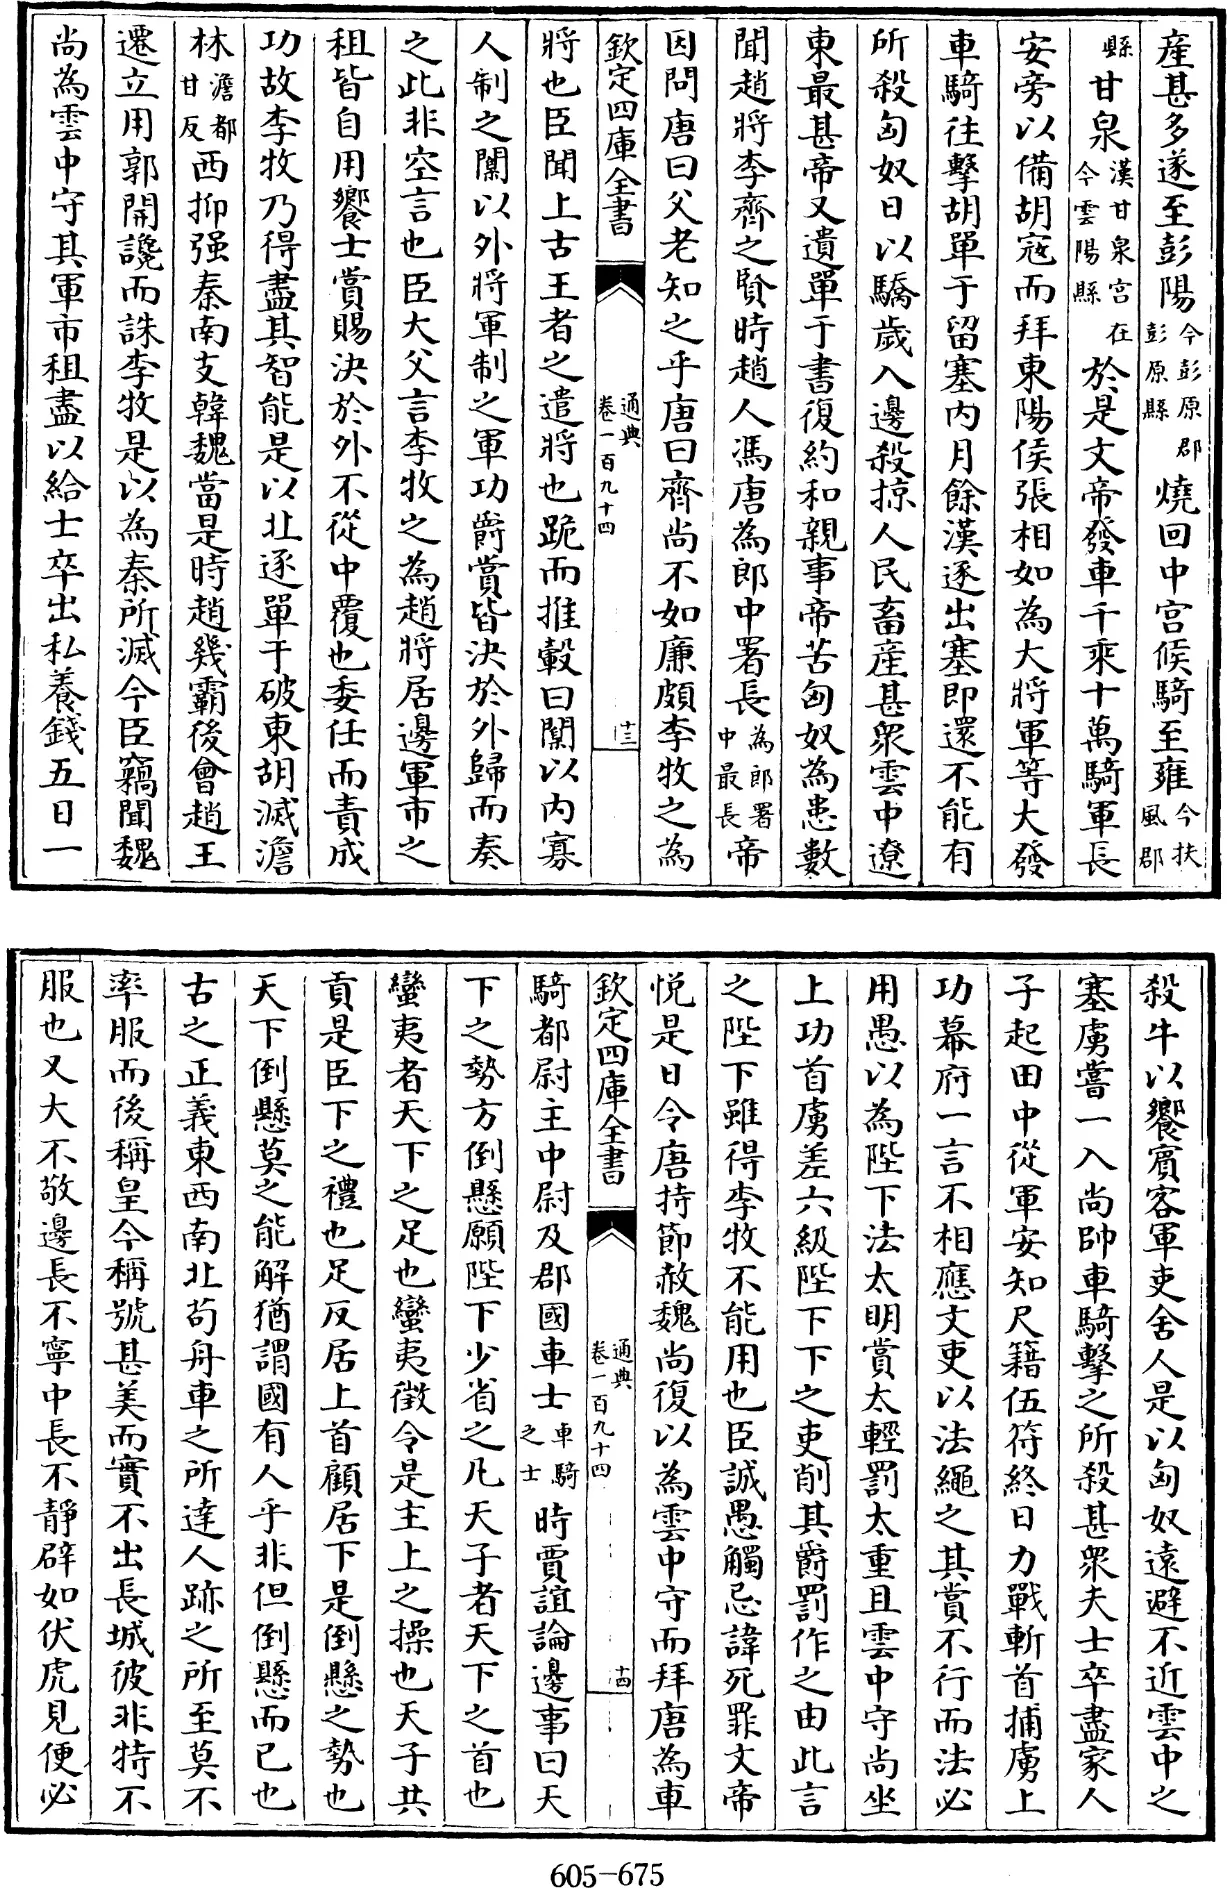 産甚多遂至彭陽今彭原郡彭原縣燒回中宫候騎至雍今扶風郡
縣甘泉漢甘泉宫在今雲陽縣於是文帝發車千乘十萬騎軍長
安旁以備胡寇而拜東陽侯張相如為大將軍等大發
車騎往擊胡單于留塞内月餘漢逐出塞即還不能有
所殺匈奴日以驕歲入邊殺掠人民畜産甚衆雲中遼
東最甚帝又遺單于書復約和親事帝苦匈奴為患數
聞趙將李齊之賢時趙人馮唐為郎中署長為郎署中最長帝
因問唐曰父老知之乎唐曰齊尚不如廉頗李牧之為
欽定四庫全書
通典
卷一百九十四
十三
將也臣聞上古王者之遣將也跪而推轂曰闑以内寡
人制之闑以外將軍制之軍功爵賞皆決於外歸而奏
之此非空言也臣大父言李牧之為趙將居邊軍市之
租皆自用饗士賞賜決於外不從中覆也委任而責成
功故李牧乃得盡其智能是以北逐單于破東胡滅澹
林澹都甘反西抑强秦南支韓魏當是時趙幾霸後會趙王
遷立用郭開讒而誅李牧是以為秦所滅今臣竊聞魏
尚為雲中守其軍市租盡以給士卒出私養錢五日一
殺牛以饗賓客軍吏舍人是以匈奴遠避不近雲中之
塞虜嘗一入尚帥車騎擊之所殺甚衆夫士卒盡家人
子起田中從軍安知尺籍伍符終日力戰斬首捕虜上
功幕府一言不相應文吏以法繩之其賞不行而法必
用愚以為陛下法太明賞太輕罰太重且雲中守尚坐
上功首虜差六級陛下下之吏削其爵罰作之由此言
之陛下雖得李牧不能用也臣誠愚觸忌諱死罪文帝
悦是日令唐持節赦魏尚復以為雲中守而拜唐為車
欽定四庫全書
通典
卷一百九十四
十四
騎都尉主中尉及郡國車士車騎之士時賈誼論邊事曰天
下之勢方倒懸願陛下少省之凡天子者天下之首也
蠻夷者天下之足也蠻夷徵令是主上之操也天子共
貢是臣下之禮也足反居上首顧居下是倒懸之勢也
天下倒懸莫之能解猶謂國有人乎非但倒懸而已也
古之正義東西南北苟舟車之所達人跡之所至莫不
率服而後稱皇今稱號甚美而實不出長城彼非特不
服也又大不敬邊長不寧中長不靜辟如伏虎見便必
605-675